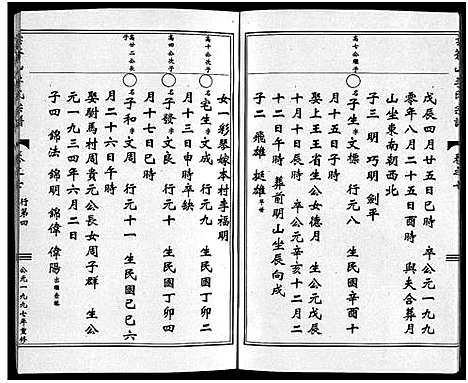 戊辰四月廿五日巳時　卒公元一九九
零年八月二十五日酉時　與夫合葬月
山坐東南朝西北
子三　明　巧明　劍平
高七公繼子
名子生　文標　行元八　生民國辛酉十
月十三日午時　卒公元
娶上王王省生公女德月　生公元戊辰
十月十二日　卒公元辛亥十二月二
十二日午時　葬前明山坐辰向戌
子二　飛雄　挺雄
女一彩琴嫁本村李福明
高十公次子
名宅生　文成　行元九　生民國丁卯二
月十三日申時卒缺
高四公次子
名子發　文良　行元十　生民國丁卯四
月十七日已時
高廿二公長子
名子和　文周　行元十一　生民國己巳六
月二十六日午時
娶尉馬村周貴元公長女周子群　生公
元一九三四年六月二日
子四　錦法　錦明　錦偉　偉陽
行第四
公元一九九七年重修